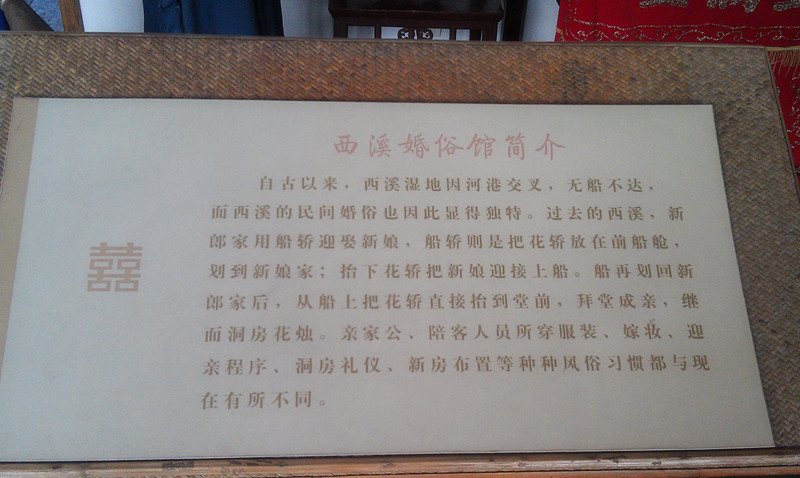 西溪婚俗馆简介
自古以来，西溪湿地因河港交叉，无船不达，
而西溪的民间婚俗也因此显得独特。过去的西溪，新
郎家用船轿迎娶新娘，船轿则是把花轿放在前船舱，
划到新娘家；抬下花轿把新娘迎接上船。船再划回新
郎家后，从船上把花轿直接抬到堂前，拜堂成亲，继
而洞房花烛。亲家公、陪客人员所穿服装、嫁妆、迎
亲程序、洞房礼仪、新房布置等种种风俗习惯都与现
在有所不同。
囍